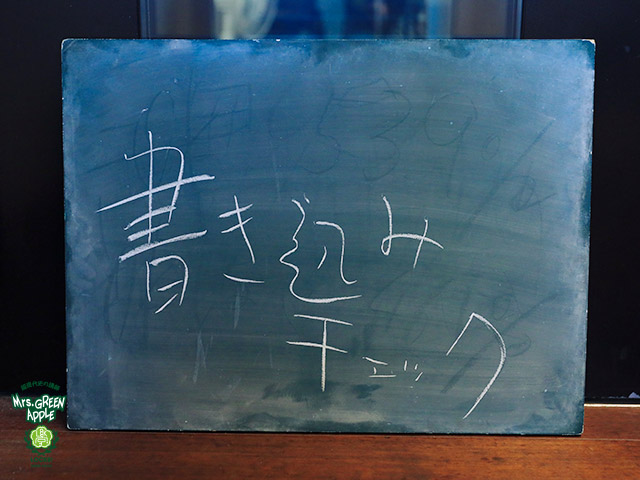 書き込み
チェック
Mrs. GREEN
APPLE